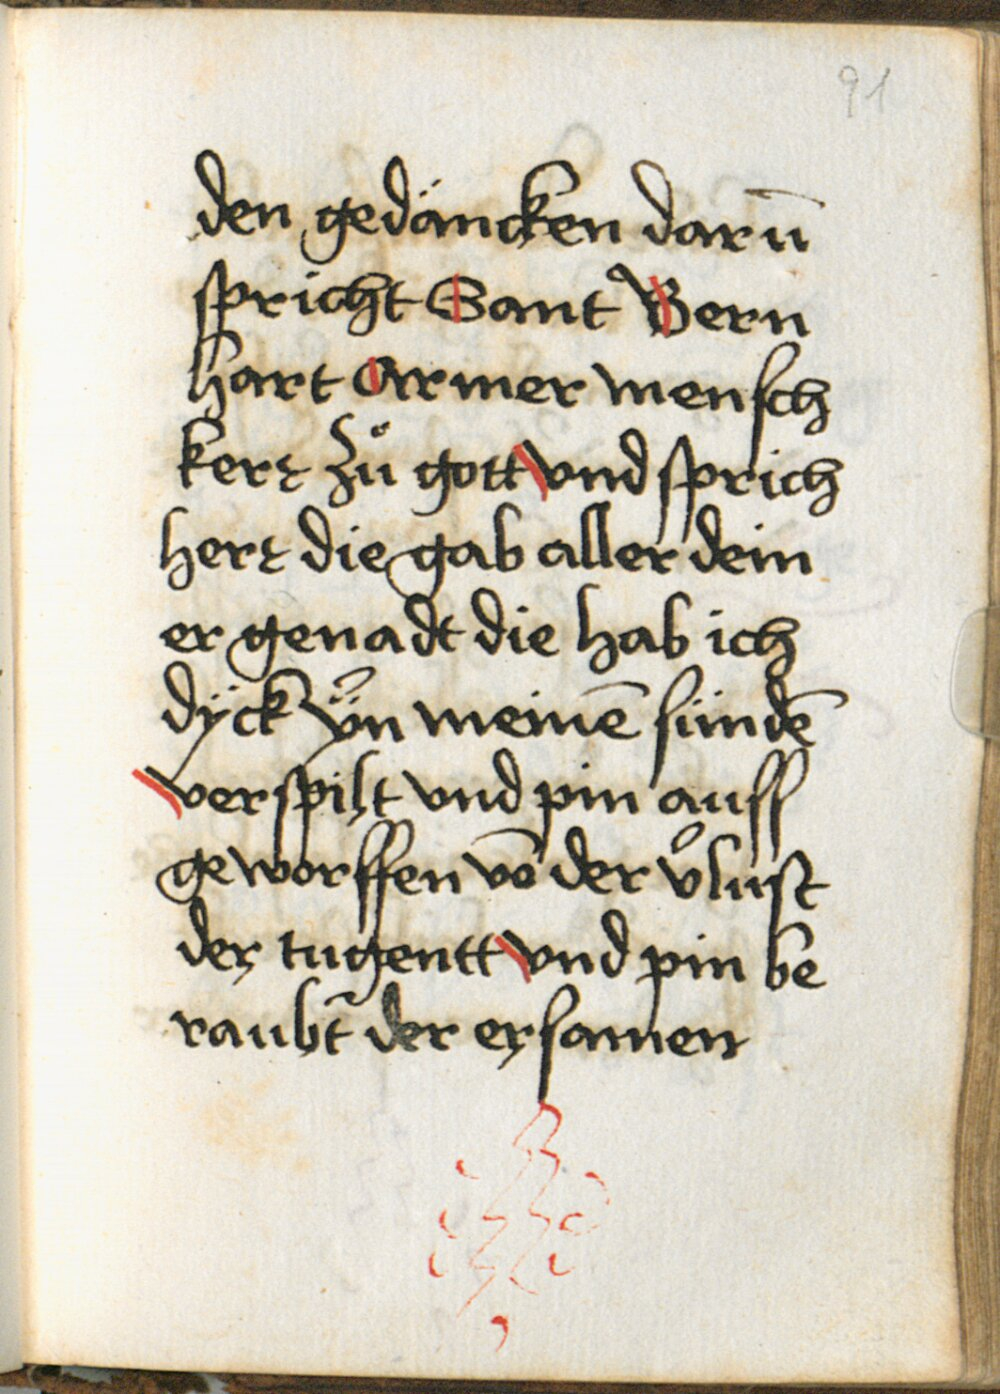 91
den gedäncken darū
spricht Sant Bern
hart Armer mensch
kerę zů gott vnd sprich
herę die gab aller dein
er genadt die hab ich
dÿck ÿn meinē sündē
verspilt vnd pin auff
geworffen vō der v̊lust
der tugentt vnd pin be
raubt̄ der ersamen